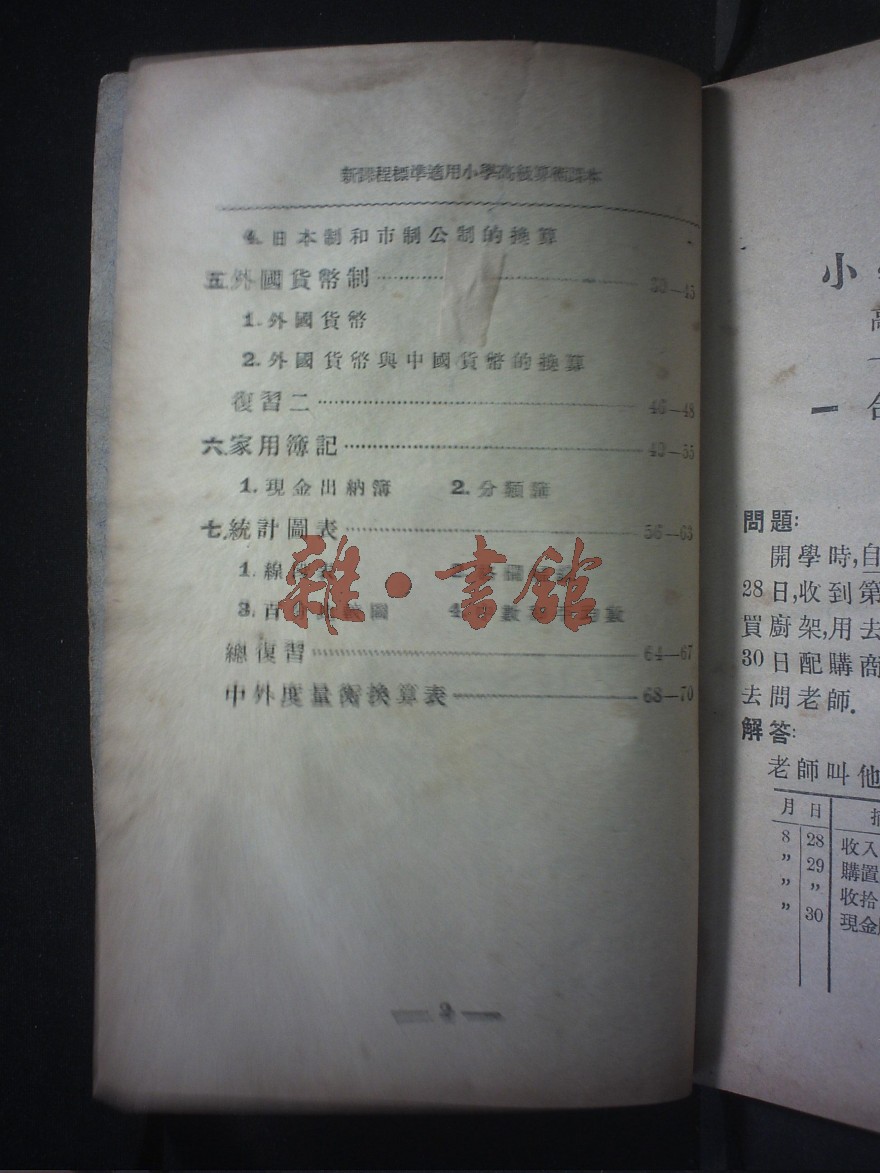 新課程標準適用小學高級算術課本
4. 日本制和市制公制的換算
五 外國貨幣制 39—45
1. 外國貨幣
2. 外國貨幣與中國貨幣的換算
復習二 46—48
六 家用簿記 49—55
1. 現金出納簿 2. 分類簿
七 統計圖表 56—63
1. 線 2.
3. 百 圖 4. 數 數
雜·書館
總復習 64—67
中外度量衡換算表 68—70
— 2 —
小
一
問題:
開學時,自
28日,收到第
買廚架,用去
30日配購商
去問老師.
解答:
老師叫他
月 日
8 28 收入
" 29 購置
" " 收拾
" 30 現金